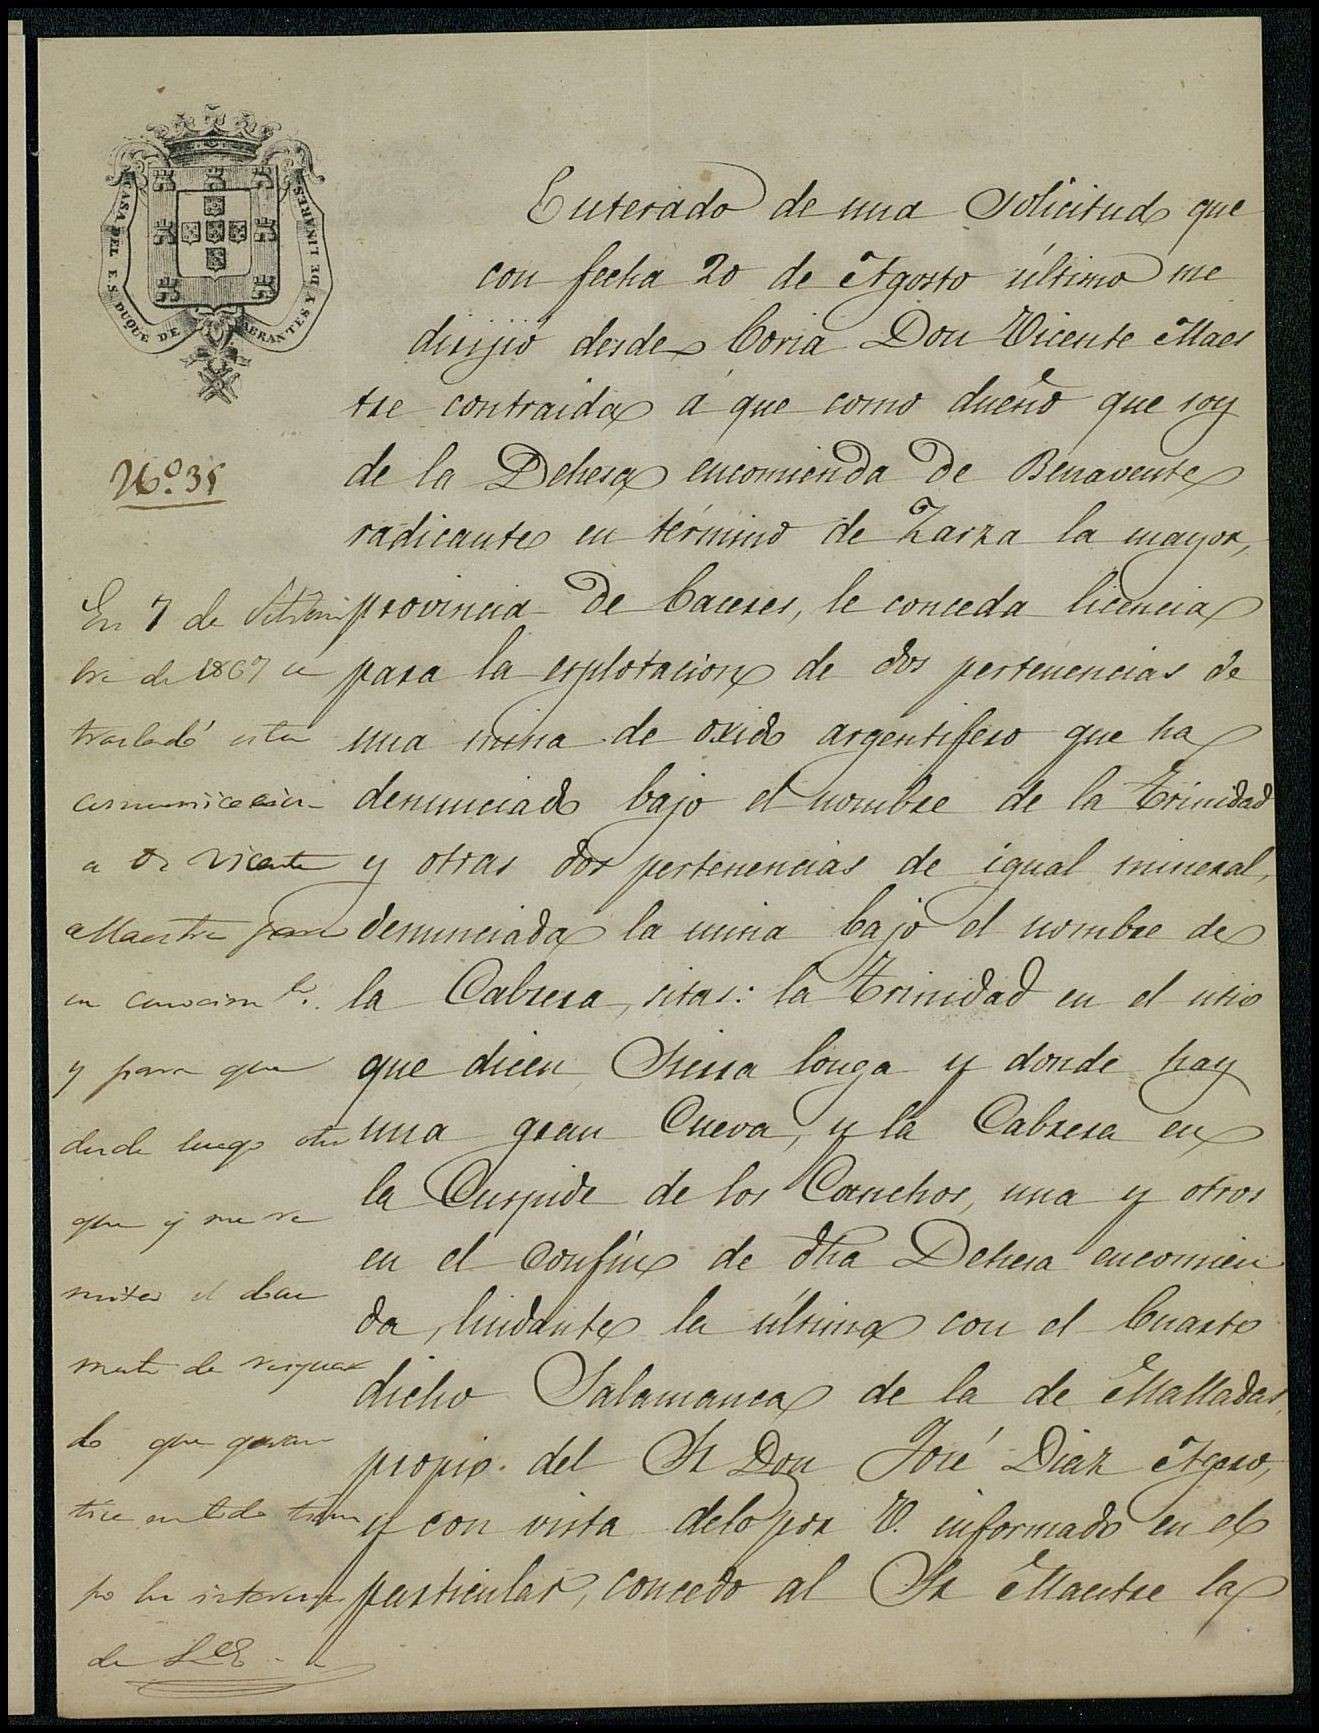 CASA DEL E. S. DUQUE DE ABRANTES Y DE LINARES
Nº. 35
Enterado de una Solicitud que
con fecha 20 de Agosto último me
dirijió desde Coria Don Vicente Maes
tre contraida á que como dueño que soy
de la Dehesa encomienda de Benavente
radicante en término de Zarza la mayor,
provincia de Caceres, le conceda licencia
para la esplotacion de dos pertenencias de
una mina de oxido argentifero que ha
denunciado bajo el nombre de la Trinidad
y otras dos pertenencias de igual mineral,
denunciada la mina bajo el nombre de
la Cabrera, sitas: la Trinidad en el sitio
que dicen Sierra longa y donde hay
una gran Cueva, y la Cabrera en
la Cuspide de los Canchos, una y otros
en el confin de dha Dehesa encomien
da, lindante la última con el Cuarto
dicho Salamanca de la de Malladas,
propio. del Sr Don José Diaz Agero,
y con vista delo por V. informado en el
particular, concedo al Sr Maestre la
En 7 de Setiem
bre de 1867 se
trasladó esta
comunicacion
a Dn Vicente
Maestre para
su conocimto.
y para que
desde luego
que y me re
mita el docu
mento de resguar
do que garan
tice en todo tiem
po los intereses
de S. E.